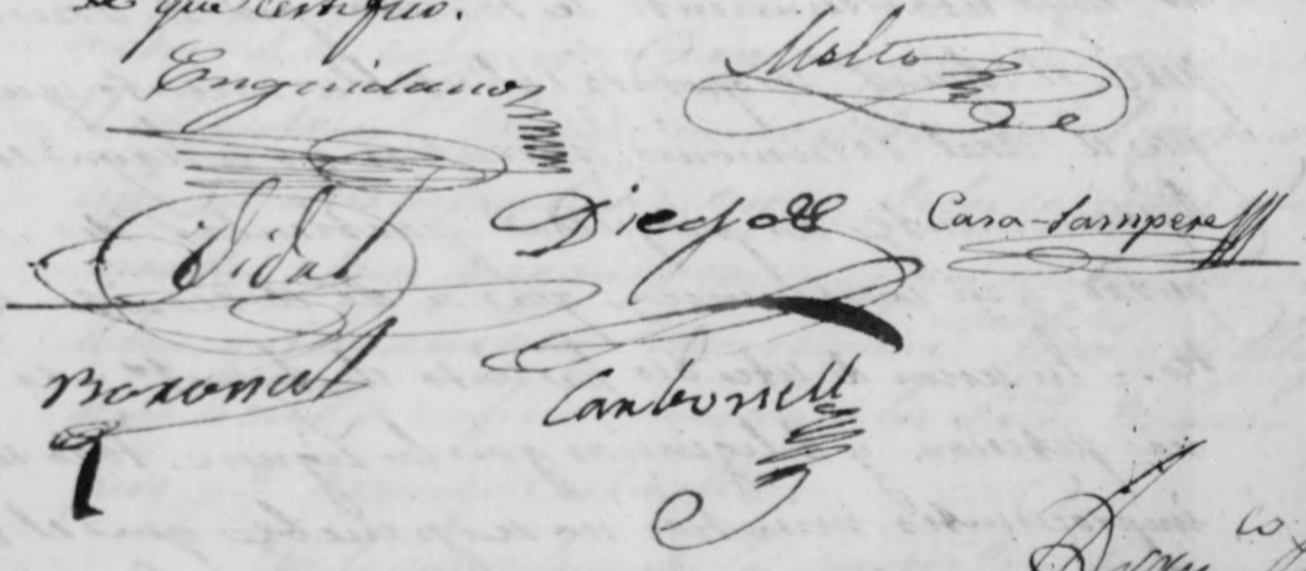 que certifico.
Enguidanos
Molto
Vidal
Diego
Casa-Sampere
Boronat
Carbonell